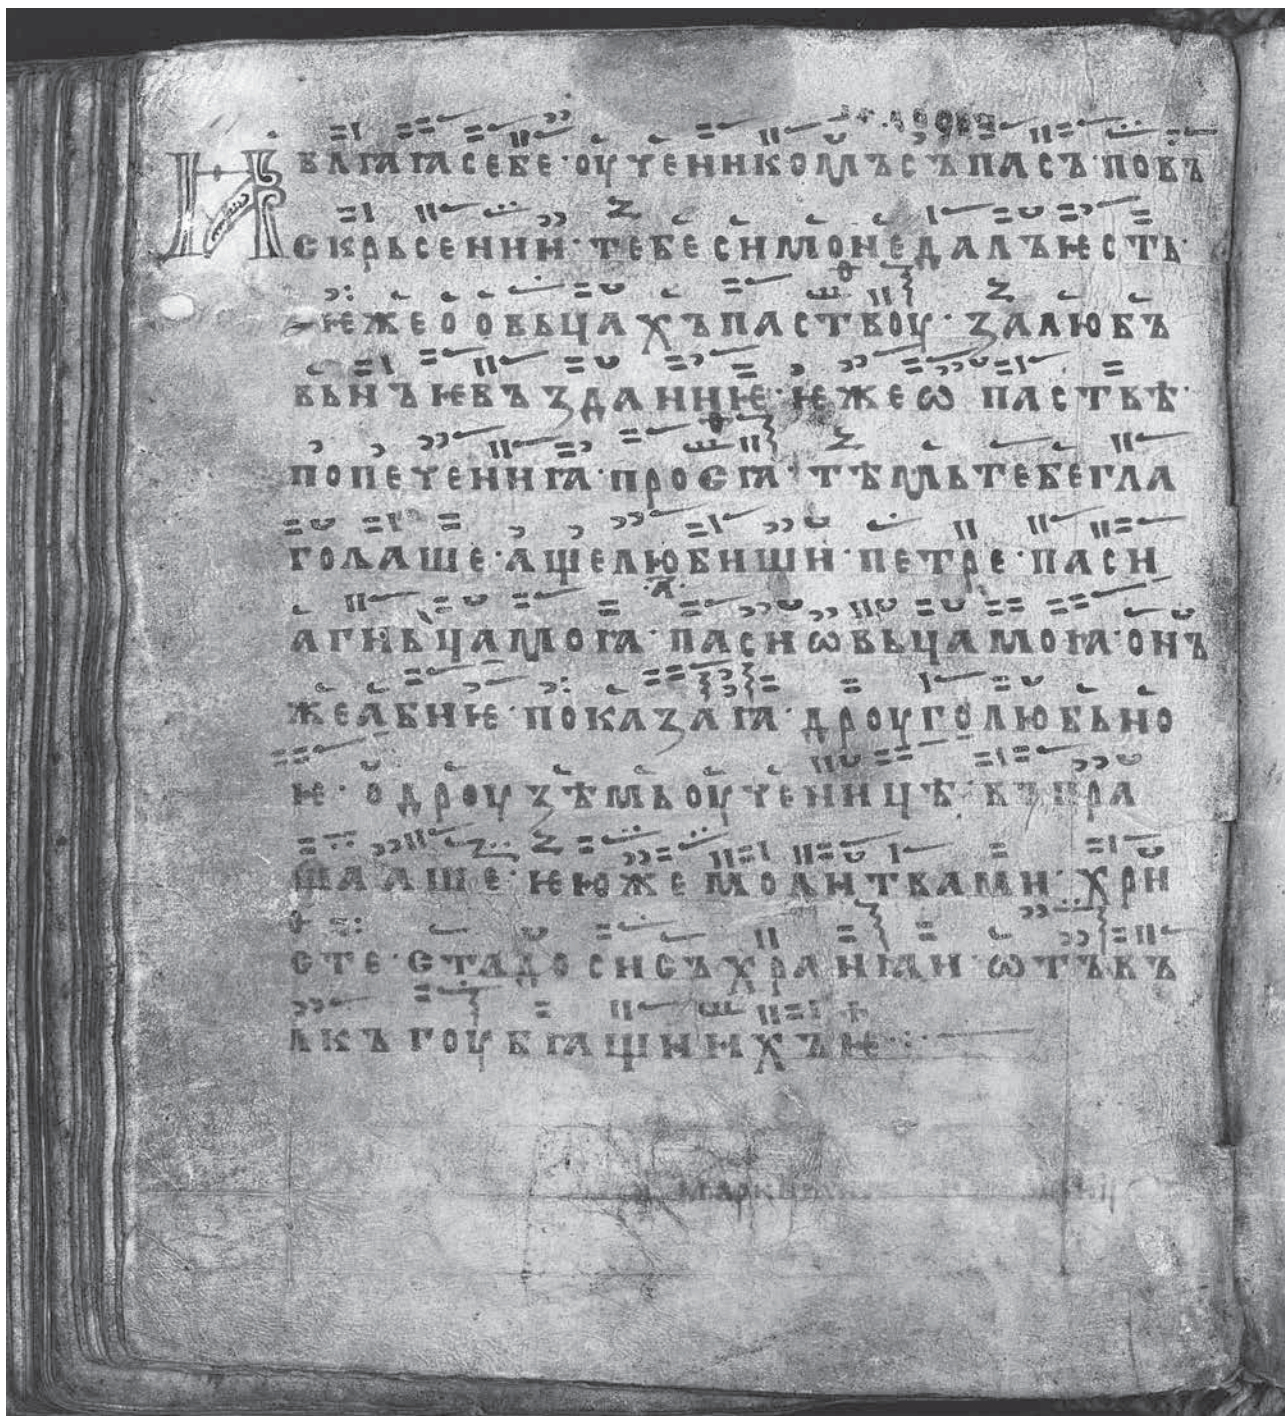 ꙖВЛꙖꙖ СЕБЕ · ОУЧЕНИКОМЪ СЪПАСЪ · ПОВЪ
СКРЬСЕНИИ · ТЕБЕ СИМОНЕ ДАЛЪ ѤСТЬ ·
ѤЖЕ О ОВЬЦАХЪ ПАСТВОУ · ЗА ЛЮБЪ
ВЬНЪѤ ВЪЗДАНИѤ · ѤЖЕ Ѡ ПАСТВѢ ·
ПОПЕЧЕНИꙖ · ПРОСꙖ · ТѢМЬ ТЕБЕ ГЛА
ГОЛАШЕ · АЩЕ ЛЮБИШИ · ПЕТРЕ · ПАСИ
АГНЬЦА МОꙖ · ПАСИ ѠВЬЦА МОꙖ · ОНЪ
ЖЕ АБИѤ · ПОКАЗАꙖ · ДРОУГОЛЮБЬНО
Ѥ · О ДРОУЗѢМЬ ОУЧЕНИЦѢ · ВЪПРА
ШААШЕ · ѤЮЖЕ МОЛИТВАМИ · ХРИ
СТЕ · СТАДО СИ СЪХРАНꙖИ · ѠТЪ ВЪ
ЛКЪ ГОУБꙖЩИИХЪ Ѥ